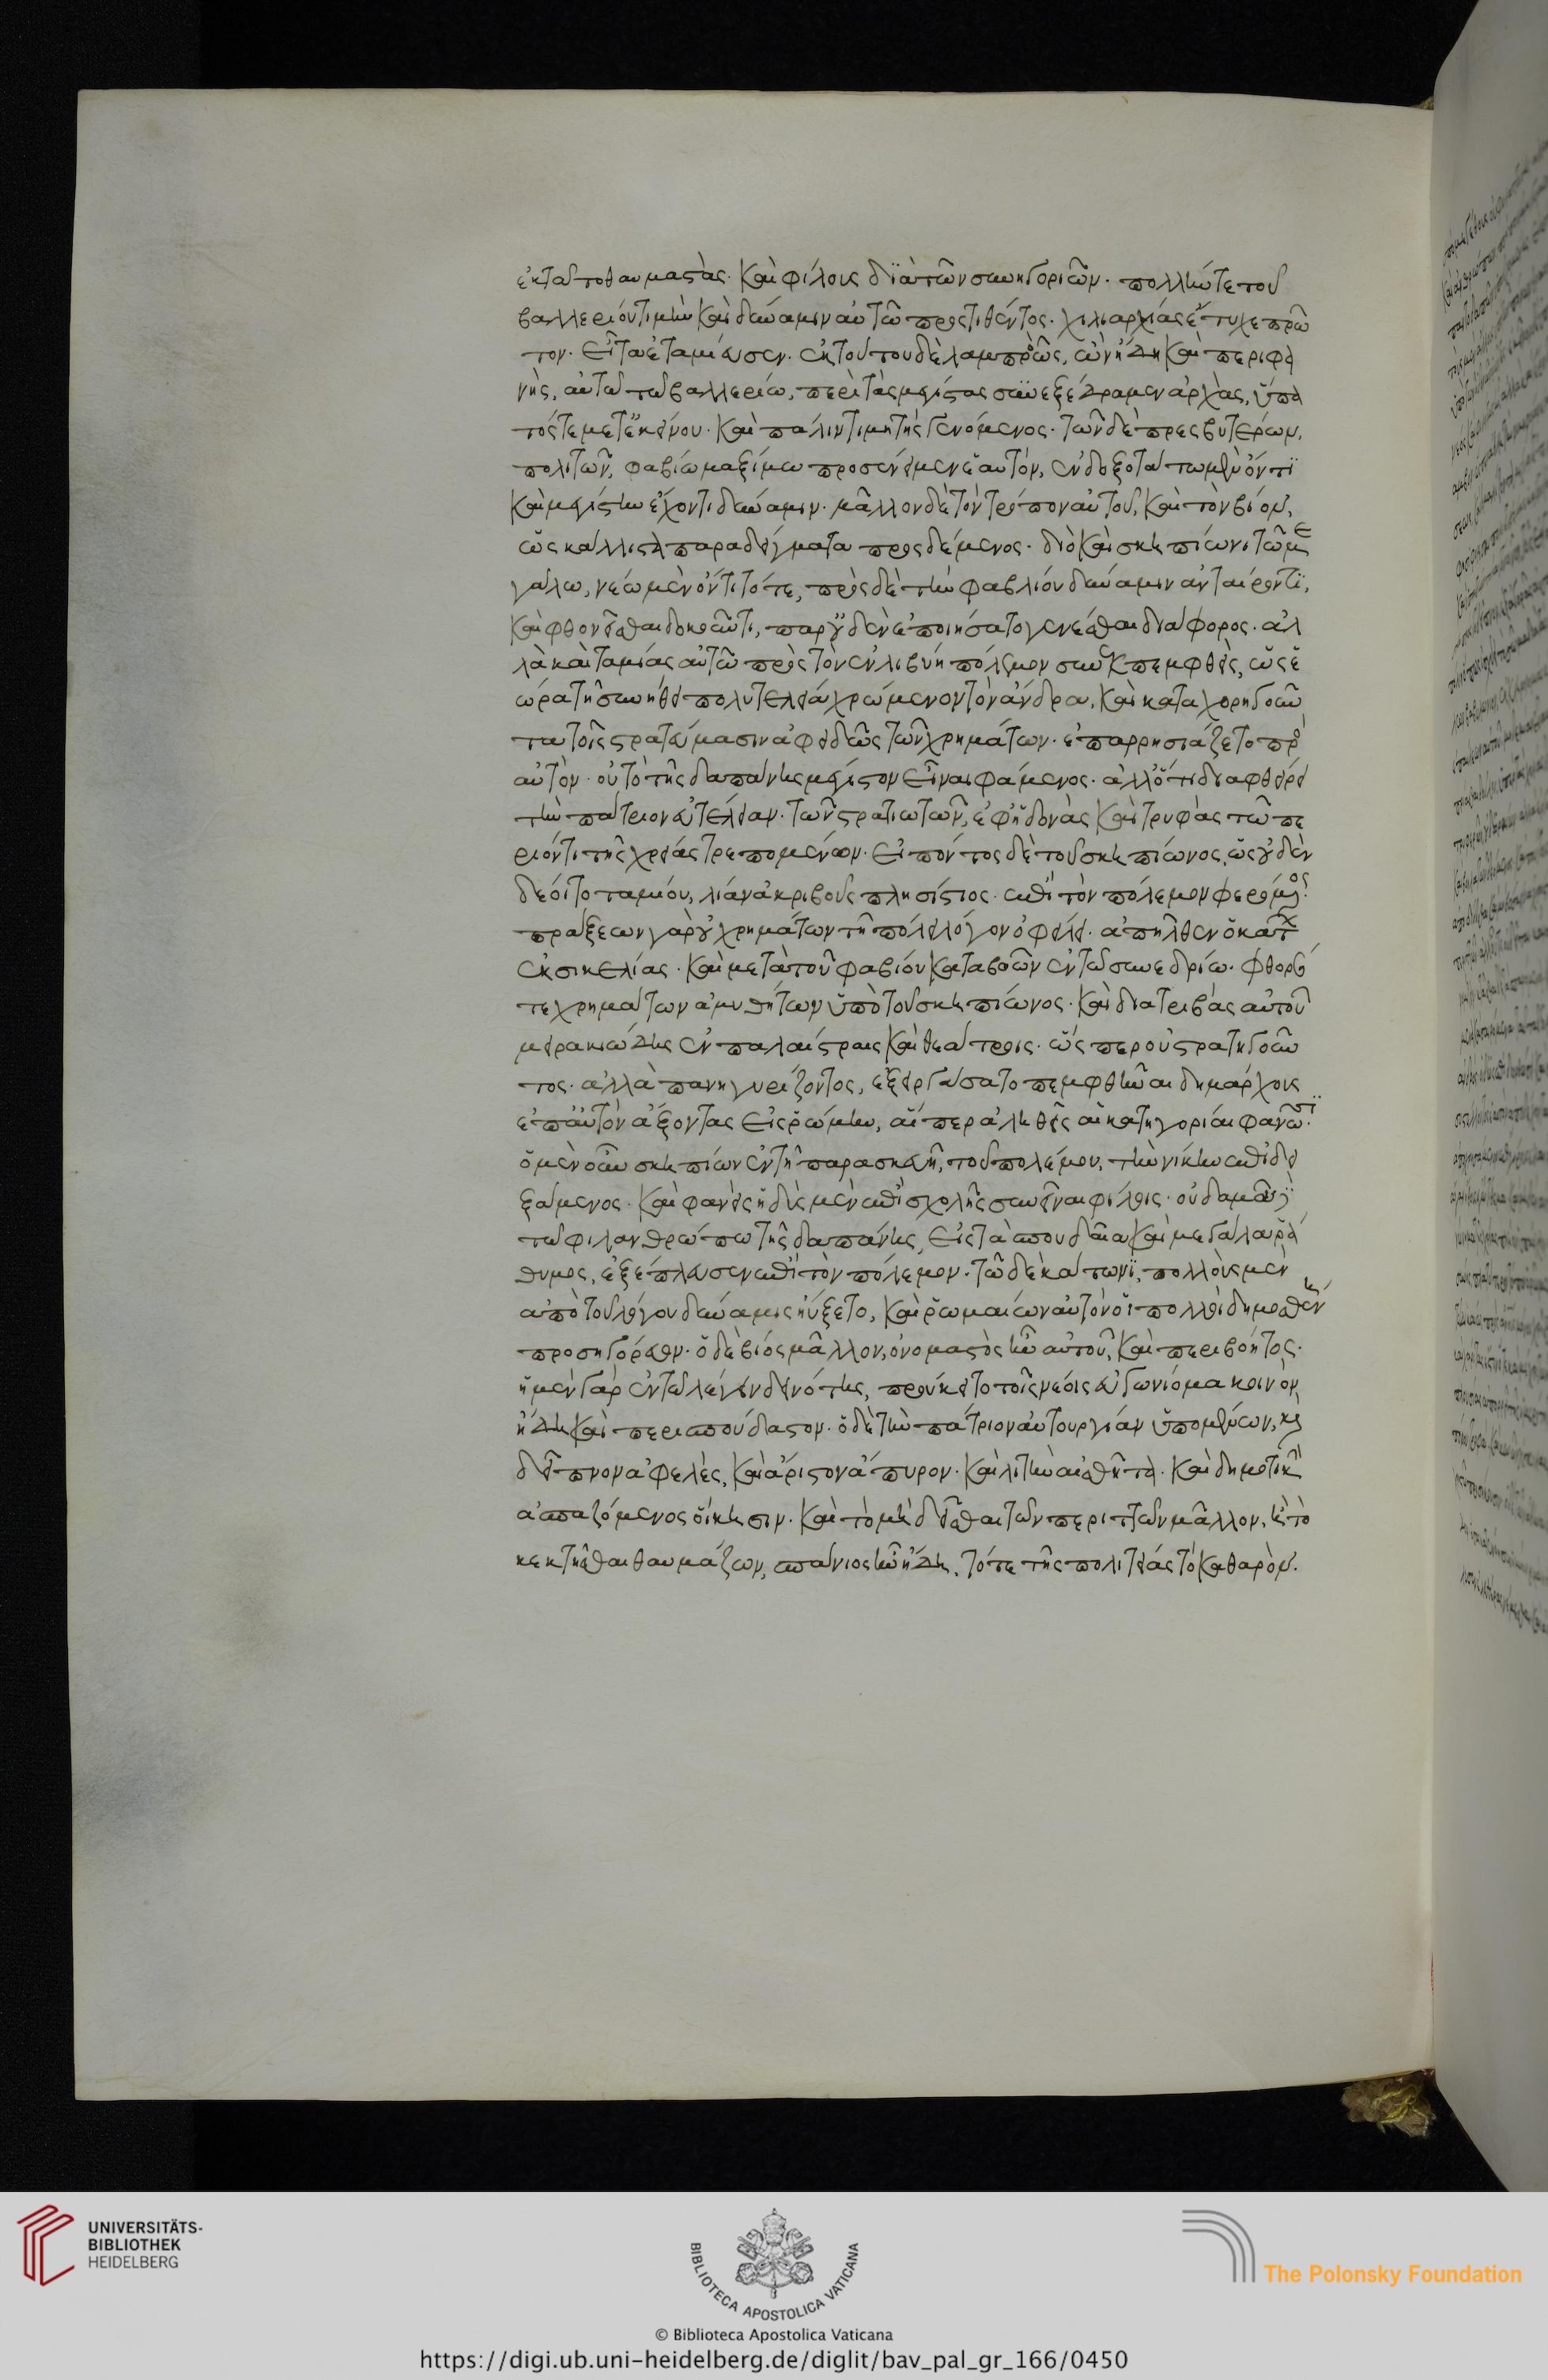 ἐκτᾶτο θαυμαστὰς· καὶ φίλους διὰ τῶν συνηγοριῶν· πολλήν τε τοῦ
βαλλερίου τιμὴν καὶ δύναμιν αὐτῶ προστιθέντος· χιλιαρχίας ἔτυχε πρῶ
τον· εἶτα ἐταμίευσεν. ἐκ τούτου δὲ λαμπρὸς, ὢν ἤδη καὶ περιφα
νής, αὐτῶ τῶ βαλλερίω, περὶ τὰς μεγίστας συνεξέδραμεν ἀρχὰς, ὕπα
τός τε μετ' ἐκείνου· καὶ πάλιν τιμητὴς γενόμενος. τῶν δὲ πρεσβυτέρων,
πολιτῶν, φαβίω μαξίμω προσένειμεν ἑαυτόν, ἐνδοξοτάτω μὲν ὄντι
καὶ μεγίστην ἔχοντι δύναμιν· μᾶλλον δὲ τὸν τρόπον αὐτοῦ, καὶ τὸν βίον,
ὡς κάλλιστα παραδείγματα προςθέμενος· διὸ καὶ σκηπίωνι τῶ με
γάλω, νέω μὲν ὄντι τότε, πρὸς δὲ τὴν φαβίου δύναμιν ἀνταίροντι,
καὶ φθονεῖσθαι δοκοῦντι, παρ' οὐδὲν ἐποιήσατο γενέσθαι διάφορος· ἀλ
λὰ καὶ ταμίας αὐτῶ πρὸς τὸν ἐν λιβύη πόλεμον συνεκπεμφθεὶς, ὡς ἑ
ώρα τῆ συνήθει πολυτελεία χρώμενον τὸν ἄνδρα, καὶ καταχορηγοῦν
τα τοῖς στρατεύμασιν ἀφειδῶς τῶν χρημάτων· ἐπαρρησιάζετο πρὸ
αὐτὸν· οὐ τὸ τῆς δαπάνης μέγιστον εἶναι φάμενος· ἀλλ' ὅτι διαφθείρει
τὴν πάτριον εὐτέλειαν· τῶν στρατιωτῶν, ἐφ' ἡδονὰς καὶ τρυφὰς τῶ πε
ριόντι τῆς χρείας τρεπομένων. εἰπόντος δὲ τοῦ σκηπίωνος, ὡς οὐδὲν
δέοιτο ταμίου, λίαν ἀκριβοῦς πλησίστιος· ἐπὶ τὸν πόλεμον φερόμενος.
πράξεων γὰρ οὐ χρημάτων τῆ πόλει λόγον ὀφείλει· ἀπῆλθεν ὁ κάτ
ἐκ σικελίας· καὶ μετὰ τοῦ φαβίου καταβοῶν ἐν τῶ συνεδρίω· φθοράς
τε χρημάτων ἀμυθήτων ὑπὸ τοῦ σκηπίωνος· καὶ διατριβὰς αὐτοῦ
μειρακιώδεις ἐν παλαίστραις καὶ θεάτροις· ὥσπερ οὐ στρατηγοῦν
τος· ἀλλὰ πανηγυρίζοντος, ἐξειργάσατο πεμφθῆναι δημάρχους
ἐπ' αὐτὸν ἄξοντας εἰς ῥώμην, ἄνπερ ἀληθεῖς αἱ κατηγορίαι φανῶσι.
ὁ μὲν οὖν σκηπίων ἐν τῆ παρασκευῆ, τοῦ πολέμου, τὴν νίκην ἐπιδει
ξάμενος· καὶ φανεὶς ἡδὺς μὲν ἐπὶ σχολῆς συνεῖναι φίλοις· οὐδαμοῦ δὲ
τῶ φιλανθρώπω τῆς δαπάνης, εἰς τὰ σπουδαῖα καὶ μεγάλα ῥά
θυμος, ἐξέπλευσεν ἐπὶ τὸν πόλεμον. τῶ δὲ κάτωνι, πολλοὺς μὲν
ἀπὸ τοῦ λόγου δύναμις ηὔξετο, καὶ ῥωμαίων αὐτὸν οἱ πολλοὶ δημοσθένην
προσηγόρευον· ὁ δὲ βίος μᾶλλον, ὀνομαστὸς ἦν αὐτοῦ, καὶ περιβόητος.
ἡ μὲν γὰρ ἐν τῶ λέγειν δεινότης, προύκειτο τοῖς νέοις ἀγώνισμα κοινὸν
ἤδη καὶ περισπούδαστον. ὁ δὲ τὴν πάτριον αὐτουργίαν ὑπομένων, καὶ
δεῖπνον ἀφελὲς, καὶ ἄριστον ἄπυρον· καὶ λιτὴν ἐσθῆτα· καὶ δημοτικὴν
ἀσπαζόμενος οἴκησιν· καὶ τὸ μὴ δεῖσθαι τῶν περιττῶν μᾶλλον, ἢ τὸ
κεκτῆσθαι θαυμάζων, σπάνιος ἦν ἤδη, τότε τῆς πολιτείας τὸ καθαρὸν.
UNIVERSITÄTS-
BIBLIOTHEK
HEIDELBERG
BIBLIOTECA APOSTOLICA VATICANA
The Polonsky Foundation
© Biblioteca Apostolica Vaticana
https://digi.ub.uni-heidelberg.de/diglit/bav_pal_gr_166/0450